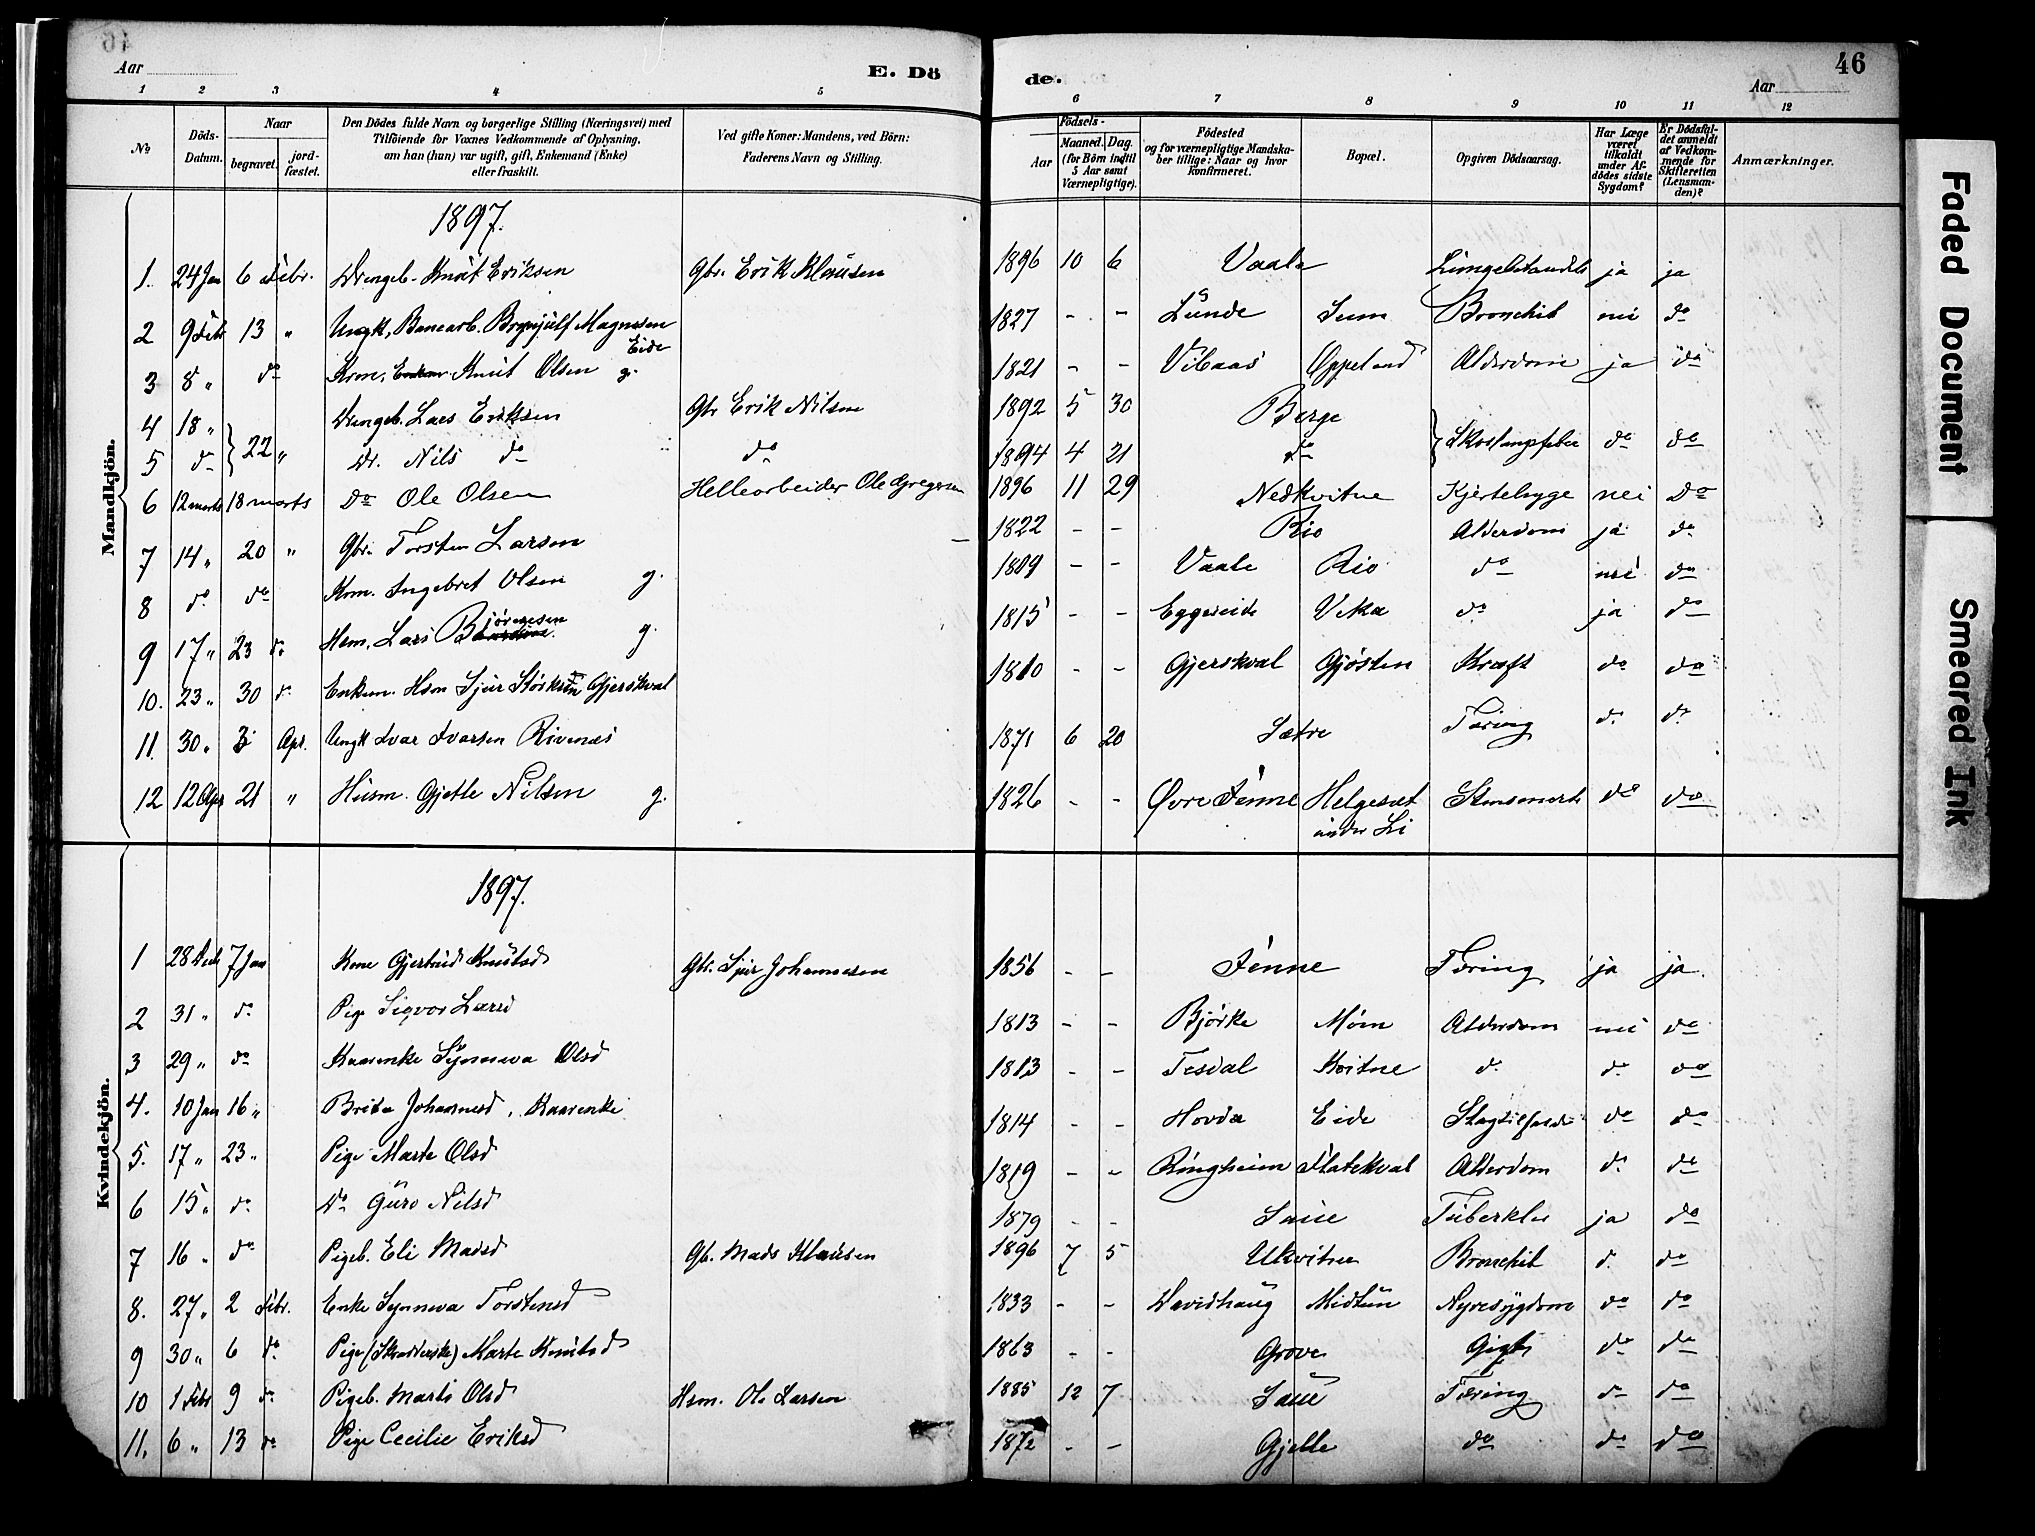 46
Aar
E. Dö
de.
Aar
1 2 3 4 5 6 7 8 9 10 11 12
No
Döds-Datum.
Naar
begravet.
jord-fæstet.
Den Dödes fulde Navn og borgerlige Stilling (Næringsvei) med
Tilföiende for Voxnes Vedkommende af Oplysning,
om han (hun) var ugift, gift, Enkemand (Enke)
eller fraskilt.
Ved gifte Koner: Mandens, ved Börn:
Faderens Navn og Stilling.
Födsels-
Aar
Maaned. Dag.
(for Börn indtil
5 Aar samt
Værnepligtige).
Födested
og for værnepligtige Mandska-
ber tillige: Naar og hvor
konfirmeret.
Bopæl.
Opgiven Dödsaarsag.
Har Læge
været
tilkaldt
under Af-
dödes sidste
Sygdom?
Er Dödsfal-
det anmeldt
af Vedkom-
mende for
Skifteretten
(Lensman-
den)?
Anmærkninger.
Mandkjön.
1897.
1. 24 Jan 6 Febr. Drengeb. Knut Eriksen Gbr. Erik Klausen 1896 10 6 Vaale ja ja
2 9 Febr 13 " Ungk. Banearb. Brynjulf Magnesen Eide 1827 - - Lunde Seim Bronchit nei do
3 8 " do Knut Olsen g. 1821 - - Vibaas Oppeland Alderdom ja do
4 18 " 22 " Drengeb. Lars Eriksen Gbr Erik Nilsen 1892 5 30 Berge Skarlagsfeber do do
5 do Dr. Nils do do 1894 4 21 do
6 12 marts 18 marts Do Ole Olsen Hellearbeider Ole Gregersen 1896 11 29 Nedkvitne Kjertelsyge nei do
7 14 " 20 " Gbr. Torsten Larsen 1822 - - Rio Alderdom ja do
8 do do Kom. Ingebret Olsen g. 1809 - - Vaale Rio do nei do
9 17 " 23 do Hsm. Lars Bjørgesen g. 1815 - - Eggereide Veka do ja do
10. 23 " 30 do Enkem. Hsm Sjur Størksen Gjerskval 1810 - - Gjerskval Gjøsten Kræft do do
11 30 " 3 Apr. Ungk Ivar Ivarsen Rivenæs 1871 6 20 Sætre Tæring do do
12 12 Apr 21 " Husm. Gjetle Nilsen g. 1826 - - Øvre Fenne Helgeset under Li do do
Kvindekjön.
1897.
1 28 Decb 7 Jan Kone Gjertrud Knutsd Gbr. Sjur Johannesen 1856 - - Fenne Tæring ja ja
2 31 " do Pige Sigvor Larsd 1813 - - Bjørke Møen Alderdom nei do
3 29 " do Kaarenke Synneva Olsd 1813 - - Tesdal Kvitne do do do
4. 10 Jan 16 " Brita Johannesd. Kaarenke 1814 - - Hovda Eide Slagtilfælde do do
5. 17 " 23 " Pige Marte Olsd 1819 - - Ringheim Flatekval Alderdom do do
6 15 " do Do Guro Nilsd 1879 - - Saue Tuberkler ja do
7 16 " do Pigeb. Eli Madsd Gb. Mads Klausen 1896 7 5 Ukvitne Bronchit do do
8. 27 " 2 Febr. Enke Synneva Torstensd 1833 - - Davidhaug Midtun Nyresygdom do do
9 30 " 6 do Pige (Skrædderske) Marte Knutsd 1863 - - Grove Gigt do do
10 1 Febr 9 do Pigeb. Marta Olsd Hsm. Ole Larsen 1885 12 7 Saue Tæring do do
11. 6 " 13 do Pige Cecilie Eriksd 1872 - - Gjelle do do do
46
Faded Document
Smeared Ink